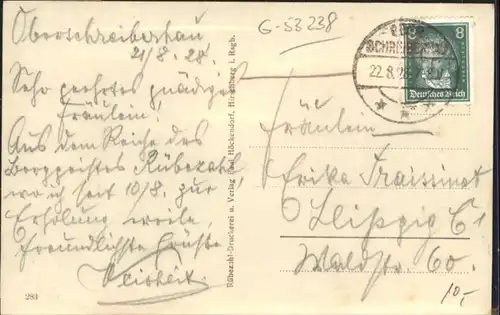 G-53238
Oberschreiberhau
21/8.28.
Sehr geehrtes gnädiges
Fräulein!
Aus dem Reiche des
Berggeistes Rübezahl,
wo ich seit 10/8. zur
Erholung weile,
freundlichste Grüße
283
Rübezahl-Druckerei u. Verlag Paul Höckendorf, Hirschberg i. Rsgb.
SCHREIBERHAU
22.8.28
8
8
Deutsches Reich
Fräulein
Erika Fraissinet
Leipzig C1
Waldstr. 60.
10,-